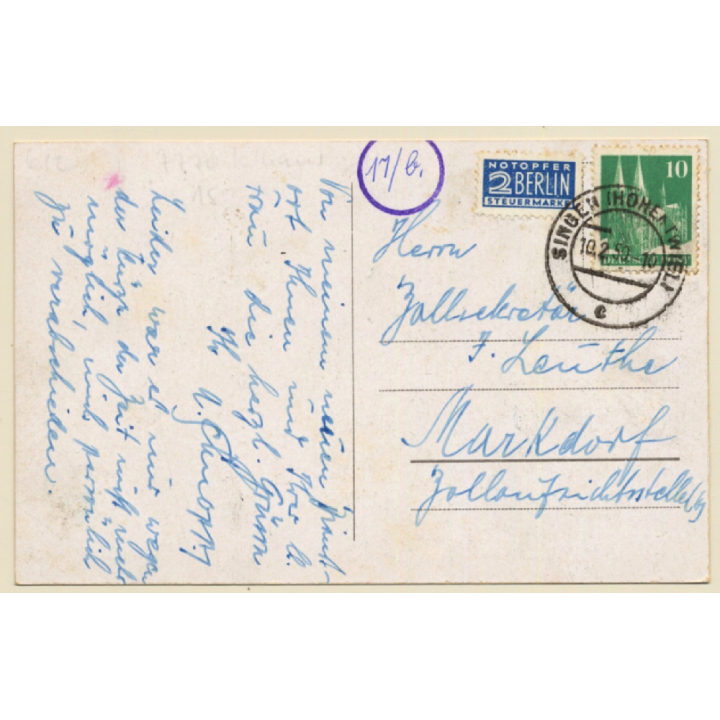 17/b.
NOTOPFER
2 BERLIN
STEUERMARKE
10
SINGEN (HOHENTWIEL)
10.2.5
e
Herrn
Zollsekretär
J. Leuthe
Markdorf
Zollaufsichtsstelle
Von meinem neuen
ort Ihnen und Ihrer lb.
Frau die herzl. Grüsse
Ihr
Leider war es mir wegen
der Kürze der Zeit nicht mehr
möglich, mich persönlich
zu verabschieden.